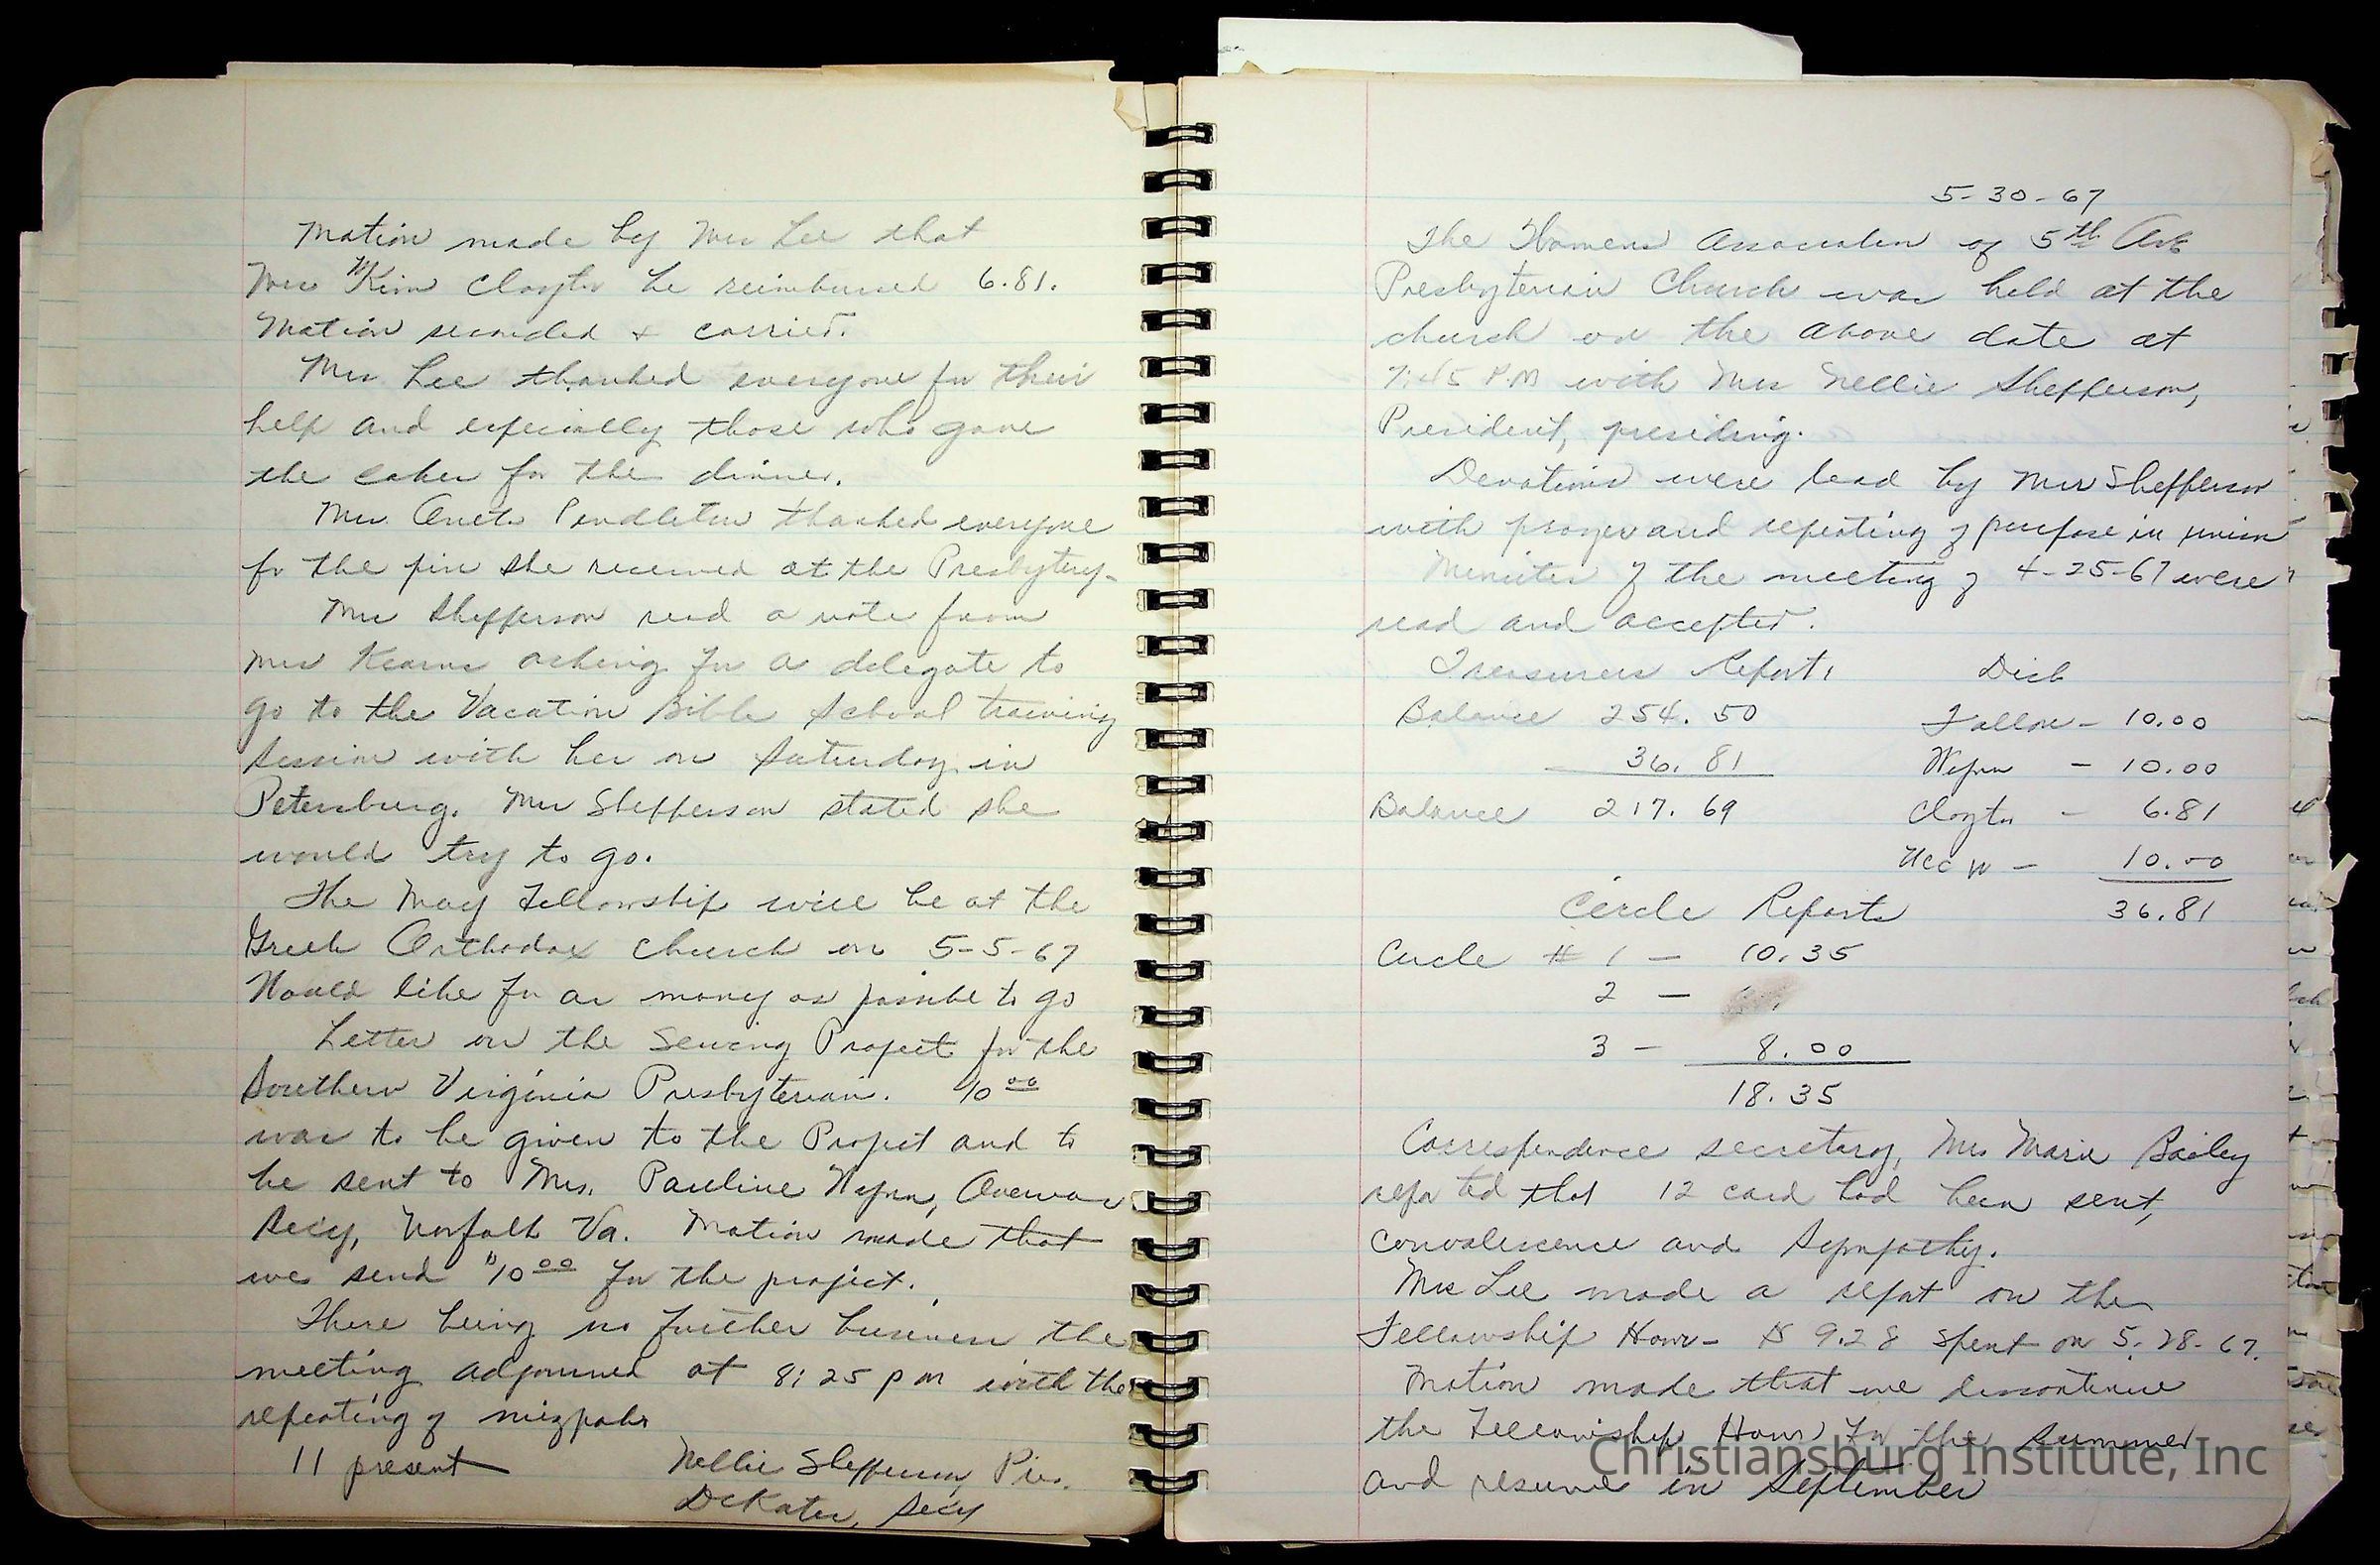 Motion made by Mrs Lee that
Mrs Kim Clayton be reimbursed 6.81.
Motion seconded & carried.
Mrs Lee thanked everyone for their
help and especially those who gave
the cakes for the dinner.
Mrs. Pendleton thanked everyone
for the pin she received at the Presbytery.
Mrs Shepperson read a note from
Mrs Kearns asking for a delegate to
go to the Vacation Bible School training
session with her on Saturday in
Petersburg. Mrs Shepperson stated she
would try to go.
The May Fellowship will be at the
Greek Orthodox Church on 5-5-67
Would like for as many as possible to go
Letter on the Sewing Project for the
Southern Virginia Presbyterian. 10 00
was to be given to the Project and to
be sent to Mrs. Pauline Overseas
Secy, Norfolk Va. Motion made that
we send $10 00 for the project.
There being no further business the
meeting adjourned at 8:25 PM with the
repeating of mizpah
11 present Nellie Shepperson, Pres.
DeKater, Secy
5-30-67
The Womens Association of 5th Ave
Presbyterian Church was held at the
church on the above date at
7:45 P.M with Mrs Nellie Shepperson,
President, presiding.
Devotions were lead by Mrs Shepperson
with prayer and repeating of purpose in unison
Minutes of the meeting of 4-25-67 were
read and accepted.
Treasurers Report, Disb
Balance 254.50 Fellow - 10.00
36.81 - 10.00
Balance 217.69 Clayton - 6.81
- 10.00
Circle Reports 36.81
Circle # 1 - 10.35
2 -
3 - 8.00
18.35
Correspondence secretary, Mrs Marie Bailey
reported that 12 card had been sent,
convalescence and Sympathy.
Mrs Lee made a report on the
Fellowship Hour - $ 9.28 spent on 5-28-67.
Motion made that we discontinue
the Fellowship Hour for the summer
and resume in September
Christiansburg Institute, Inc